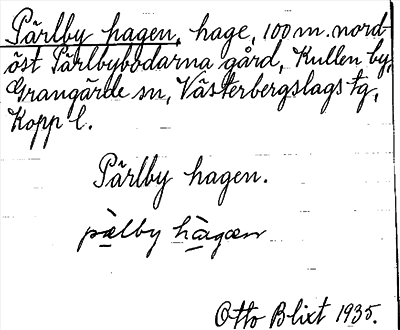 Pärlby hagen, hage, 100 m. nord-
öst Pärlbybodarna gård, Kullen by,
Grangärde sn, Västerbergslags tg,
Kopp l.
Pärlby hagen.
pælby hagæn
Otto Blixt 1935.